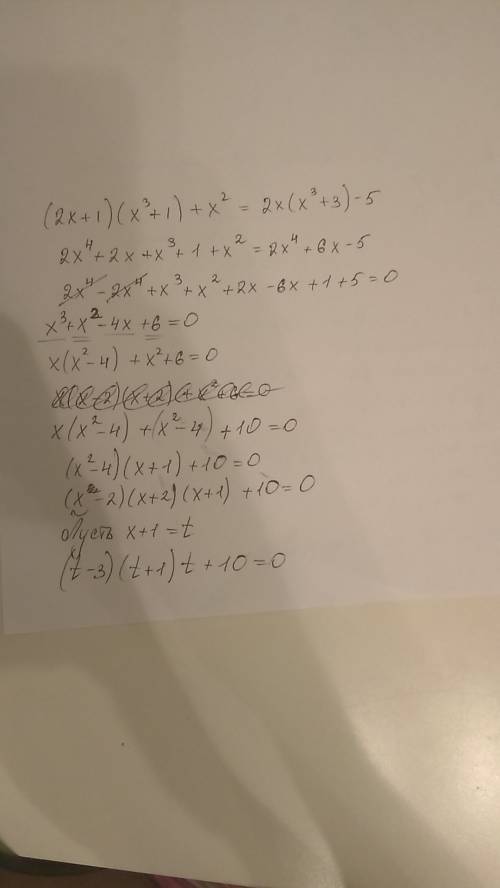 (2x+1)(x³+1)+x² = 2x(x³+3)-5
2x⁴+2x+x³+1+x² = 2x⁴+6x-5
2x⁴-2x⁴+x³+x²+2x-6x+1+5=0
x³+x²-4x+6=0
x(x²-4)+x²+6=0
x(x-2)(x+2)+x²+6=0
x(x²-4)+(x²-4)+10=0
(x²-4)(x+1)+10=0
(x-2)(x+2)(x+1)+10=0
Пусть x+1=t
(t-3)(t+1)t+10=0